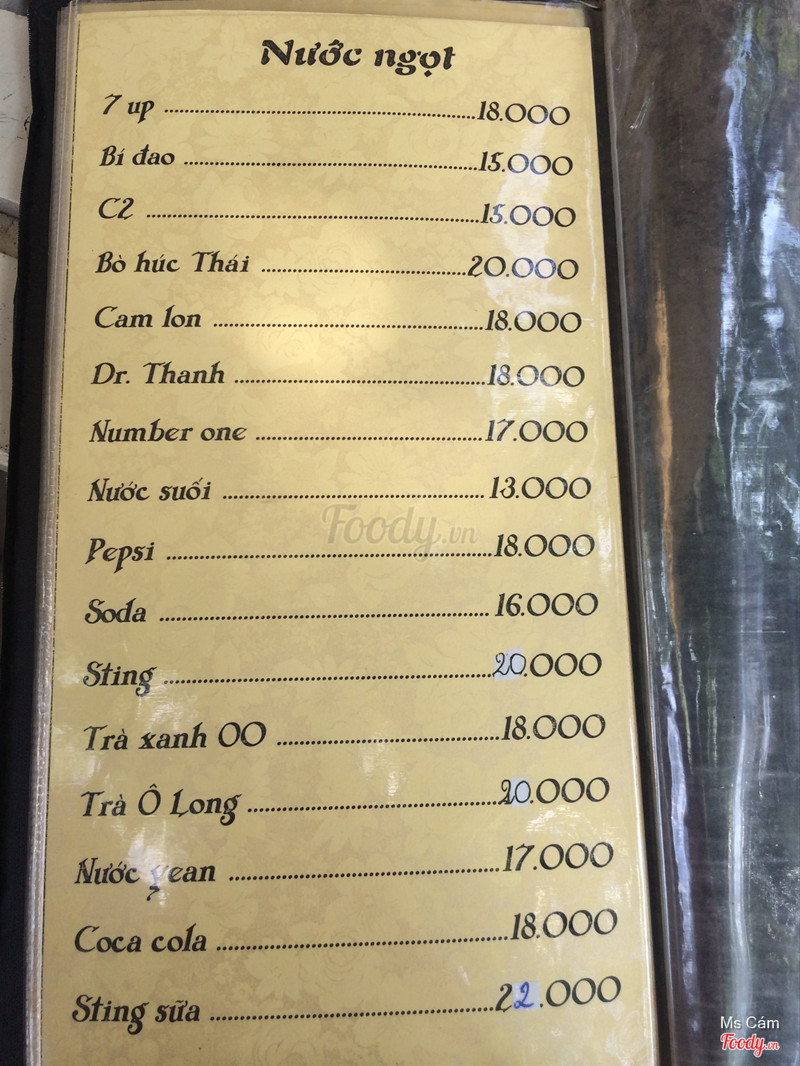 Nước ngọt
7 up ...........................18.000
Bí đao ...........................15.000
C2 ...........................15.000
Bò húc Thái ...........................20.000
Cam lon ...........................18.000
Dr. Thanh ...........................18.000
Number one ...........................17.000
Nước suối ...........................13.000
Pepsi ...........................18.000
Soda ........................... 16.000
Sting ...........................20.000
Trà xanh OO ...........................18.000
Trà Ô Long ...........................20.000
Nước yean ...........................17.000
Coca cola ...........................18.000
Sting sữa ...........................22.000
Foody.vn
Ms Cám
Foody.vn